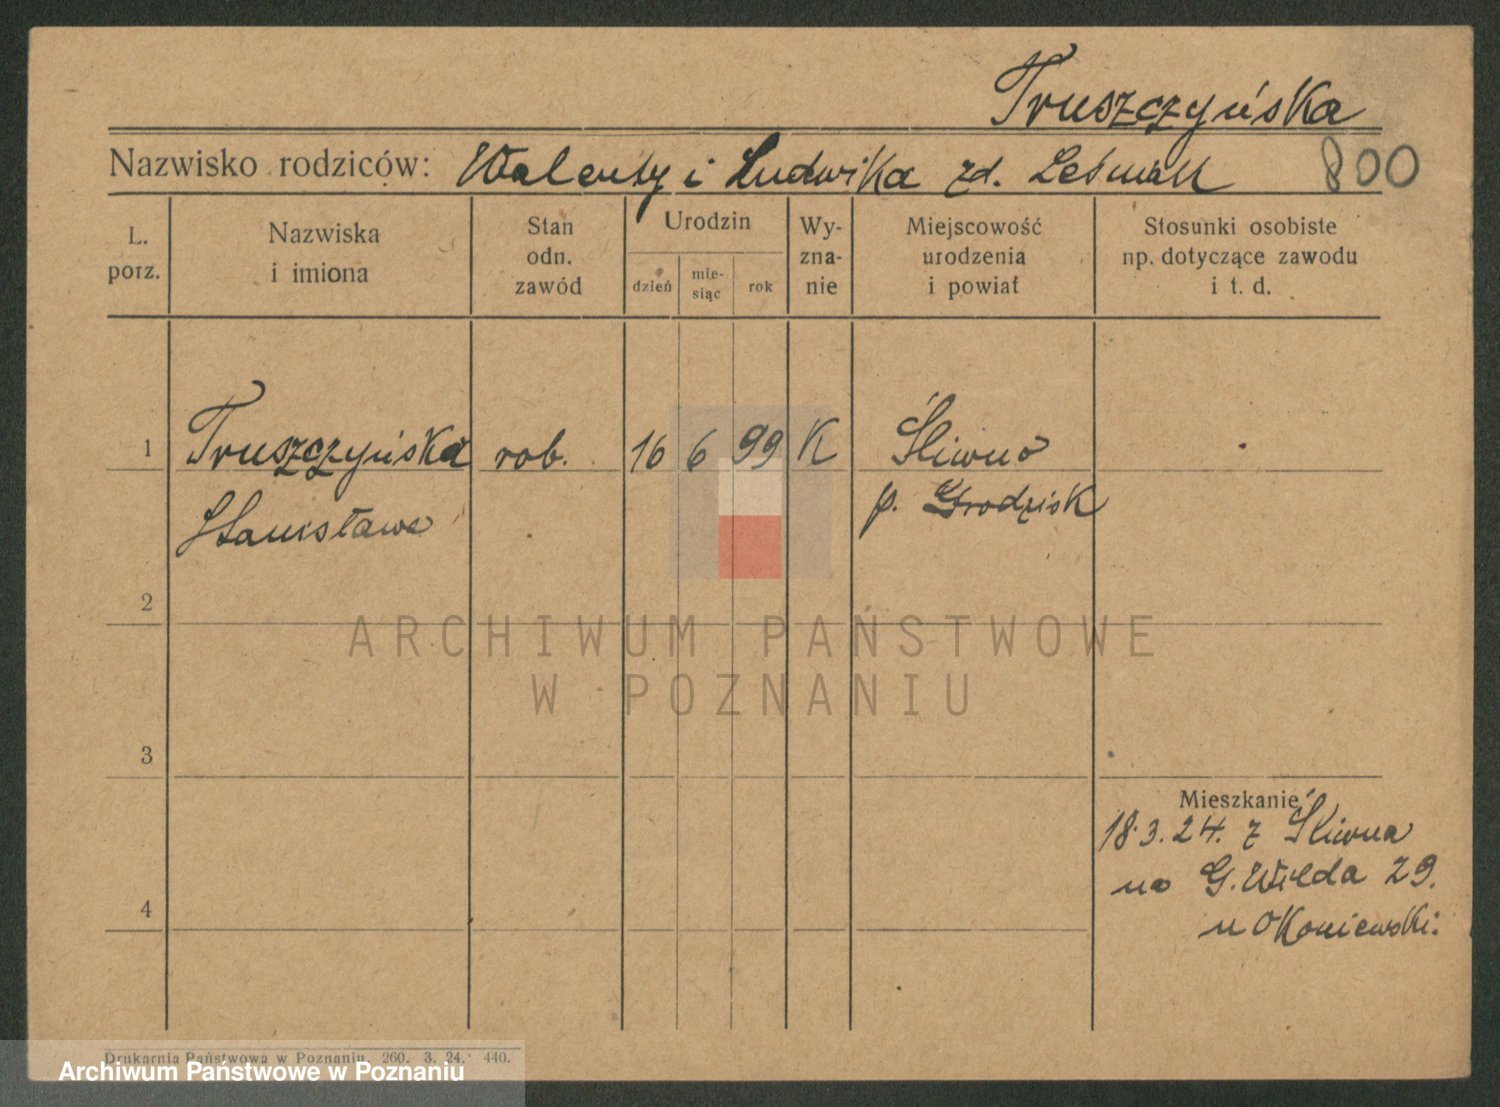 Truszczyńska
Nazwisko rodziców: Walenty i Ludwika zd. Leśniak 800
L. porz.
Nazwiska i imiona
Stan odn. zawód
Urodzin
dzień
mie-
siąc
rok
Wy-
zna-
nie
Miejscowość urodzenia i powiat
Stosunki osobiste np. dotyczące zawodu i t. d.
1 Truszczyńska rob. 16 6 99 K Śliwno
Stanisława p. Grodzisk
2
ARCHIWUM PAŃSTWOWE
W POZNANIU
3
Mieszkanie
18.3.24. z Śliwna
na G. Wilda 29.
4
u Okoniewski.
Drukarnia Państwowa w Poznaniu. 260. 3. 24. 440.
Archiwum Państwowe w Poznaniu